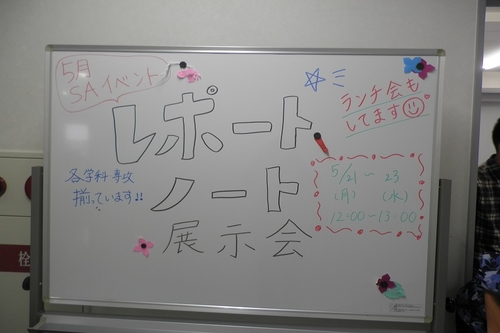 5月
SAイベント
レポート
ノート
展示会
ランチ会も
してます
各学科専攻
揃っています!!
5/21〜23
(月) (水)
12:00〜13:00
栓